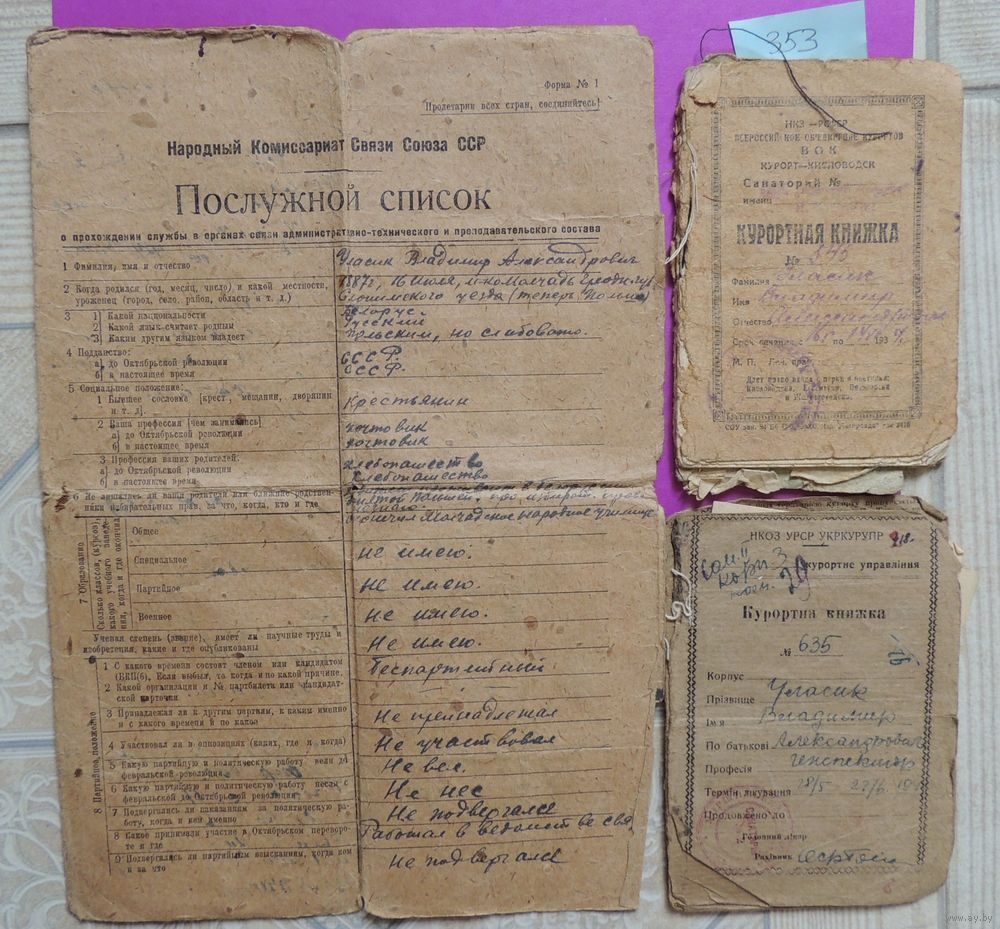 353
Форма № 1
Пролетарии всех стран, соединяйтесь!
Народный Комиссариат Связи Союза ССР
Послужной список
о прохождении службы в органах связи административно-технического и преподавательского состава
1 Фамилия, имя и отчество
Уласик Владимир Александрович
2 Когда родился (год, месяц, число) и какой местности,
уроженец (город, село, район, область и т. д.)
16 июля,
Слонимского уезда (теперь
3 1) Какой национальности
Белорус.
2) Какой язык считает родным
Русский
3) Каким другим языком владеет
Польским, но слабовато.
4 Подданство:
а) до Октябрьской революции
СССР.
б) в настоящее время
СССР.
5 Социальное положение:
1 Бывшее сословие (крест, мещанин, дворянин
и т. д.)
Крестьянин
2 Ваша профессия [чем занимались]
а) до Октябрьской революции
почтовик
б) в настоящее время
почтовик
3 Профессия ваших родителей:
а) до Октябрьской революции
хлебопашество
б) в настоящее время
хлебопашество
6 Не лишались ли ваши родители или ближние родствен-
ники избирательных прав, за что, когда, кто и где
7 Образование
Сколько классов, (курсов),
какого учебного заведе-
ния, когда и где окончил
Общее
Молчадское народное училище
Специальное
Не имею.
Партийное
Не имею.
Военное
Не имею.
Ученая степень (звание), имеет ли научные труды и
изобретения, какие и где опубликованы
Не имею.
8 Партийное положение
1 С какого времени состоит членом или кандидатом
(ВКП(б). Если выбыл, то когда и по какой причине.
Беспартийный
2 Какой организации и № партбилета или кандидат-
ской карточки
3 Принадлежал ли к другим партиям, к каким именно
и с какого времени и по какое
Не принадлежал
4 Участвовал ли в оппозициях (каких, где и когда)
Не участвовал
5 Какую партийную и политическую работу вели до
февральской революции
Не вел.
6 Какую партийную и политическую работу несли с
февральской до Октябрьской революции
Не нес
7 Подвергались ли наказаниям за политическую ра-
боту, когда и кем именно
Не подвергался
8 Какое принимали участие в Октябрьском перевор-
те и где
Работал в ведомстве связи
9 Подвергались ли партийным взысканиям, когда кем
и за что
Не подвергался
НКЗ — РСФСР
ВСЕРОССИЙСКОЕ ОБЪЕДИНЕНИЕ КУРОРТОВ
ВОК
КУРОРТ—КИСЛОВОДСК
Санаторий №
имени
КУРОРТНАЯ КНИЖКА
№
Фамилия Уласик
Имя Владимир
Отчество Александрович
Срок лечения с по 193
М. П.
НКОЗ УРСР УКРКУРУПР
курортне управління
Курортна книжка
№ 635
Корпус
Прізвище Уласик
Ім'я Владимир
По батькові Александрович
Професія инспектор
Термін лікування 28/5 22/6
Продовжено до
Головний лікар
Рахівник
www.ay.by